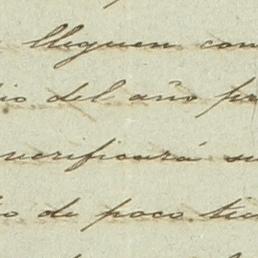 lleguen con
io del año pr
verificará su
o de poco tie